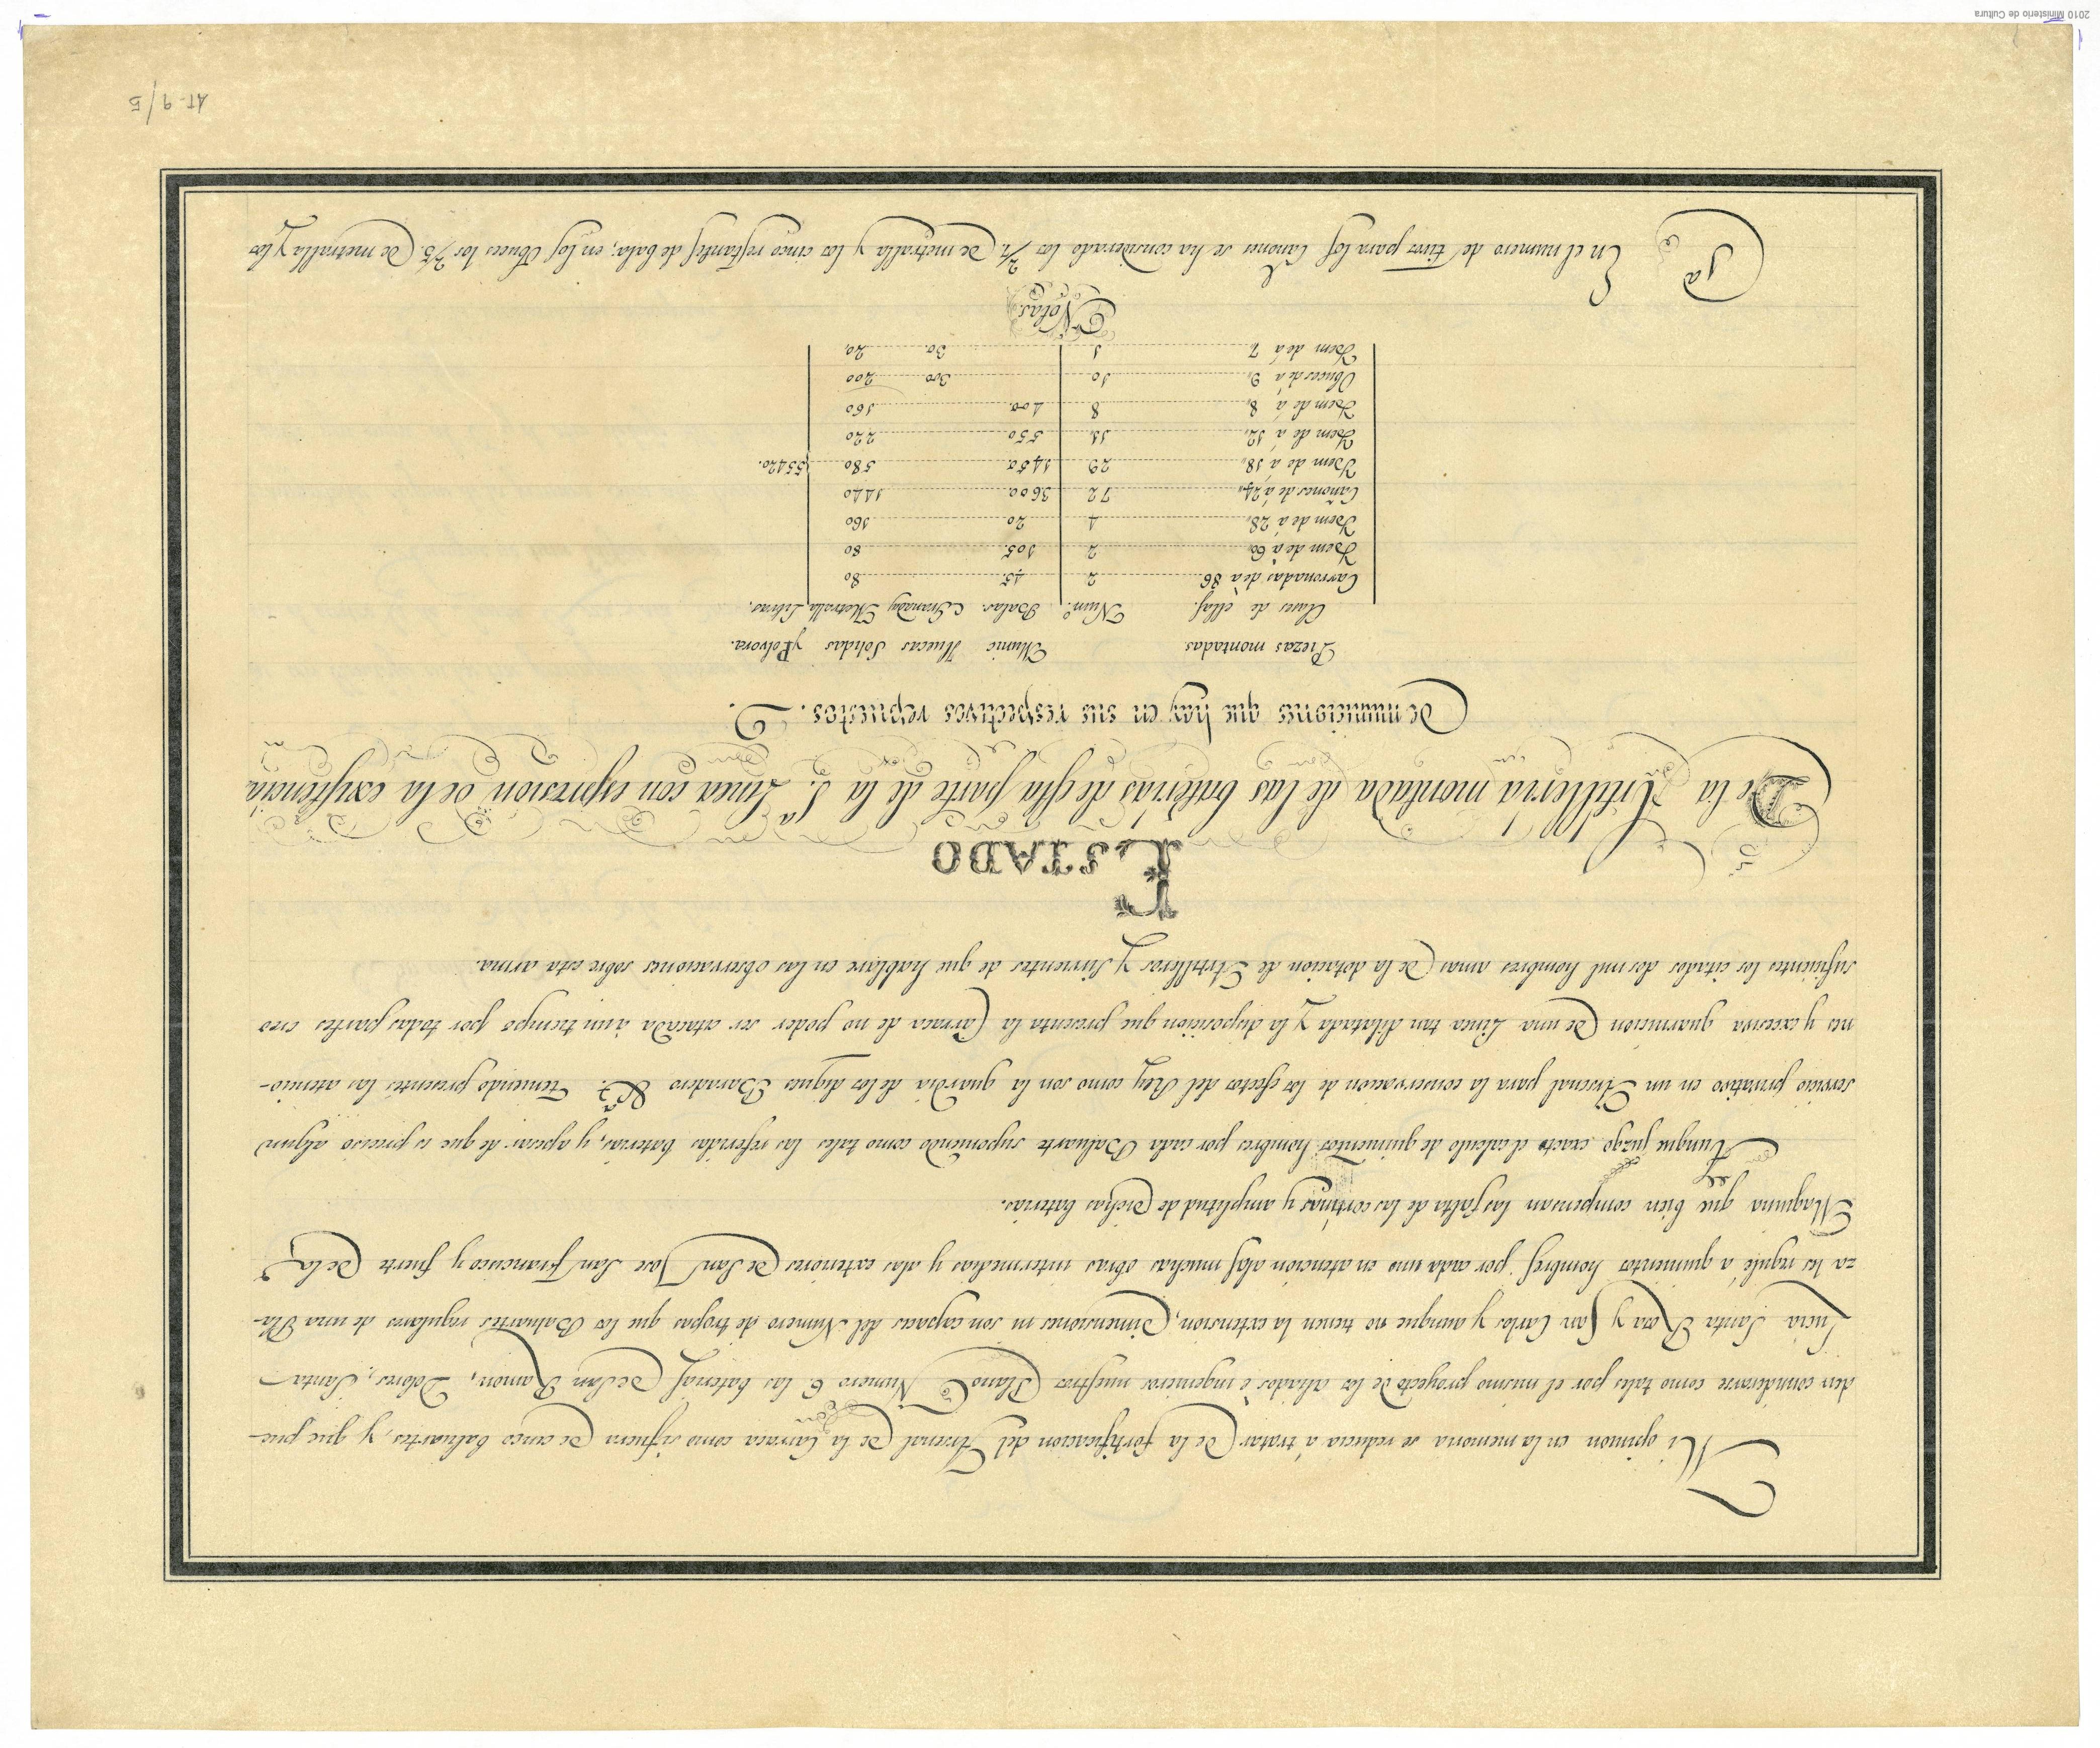 Mi opinion en la memoria se reducia á tratar De la fortificacion del Arsenal De la Carraca como si fuera De cinco baluartes, y que pue-
den considerarse como tales por el mismo proyecto De los aliados è ingenieros nuestros Plano Numero 6 las baterias De San Ramon, Dolores, Santa
Lucia Santa Rosa y San Carlos y aunque no tienen la extension, Dimensiones ni son capaces del Numero de tropas que los Baluartes regulares de una Pla-
za les regulé á quinientos hombres por cada uno en atencion alas muchas obras intermedias y alas exteriores De San Jose San Francisco y fuerte De la
Maquina que bien compensan las falta de las cortinas y amplitud de Dichas baterias.
Aunque juzgo exacto el calculo de quinientos hombres por cada Baluarte suponiendo como tales las referidas baterias, y apesar de que es preciso algun
servicio privativo en un Arsenal para la conservacion de los efectos del Rey como son la guardia de los diques Baradero &ª. Teniendo presentes las atencio-
nes y excesiva guarnicion De una Linea tan dilatada Y la disposicion que presenta la Carraca de no poder ser atacada á un tiempo por todas partes creo
suficientes los citados dos mil hombres amas De la dotacion de Artilleros Y Sirvientes de que hablare en las observaciones sobre esta arma.
ESTADO
De la Artilleria montada de las baterias de esta parte de la 1.ª Linea con expresion De la existencia
De municiones que hay en sus respectivos repuestos.
Piezas montadas Munic Huecas Solidas y Polvora.
Clases de ellas. Num.º Balas. Granadas Metralla Libras.
Carronadas de à 86 2 45. 80
Idem de à 60 2 105. 80
Idem de á 28, 4 20 160
Cañones de á 24, 72 3600 1440
Idem de á 18, 29 1450 580 55420.
Idem de á 12, 11 550 220
Idem de á 8, 8 400. 160
Obuces de á 9, 10 300 200
Idem de á 7 1 30. 20,
Notas.
1ª En el numero de tiros para los Cañones se ha considerado los 2/7. De metralla y los cinco restantes de bala; en los Obuces los 2/5. De metralla y los
AT-9/5
2010 Ministerio de Cultura